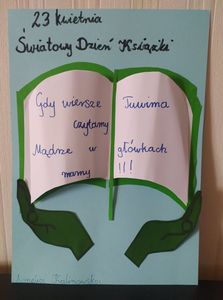 23 kwietnia
Światowy Dzień Książki
Gdy wiersze Tuwima
czytamy
Mądrze w główkach
mamy !!!